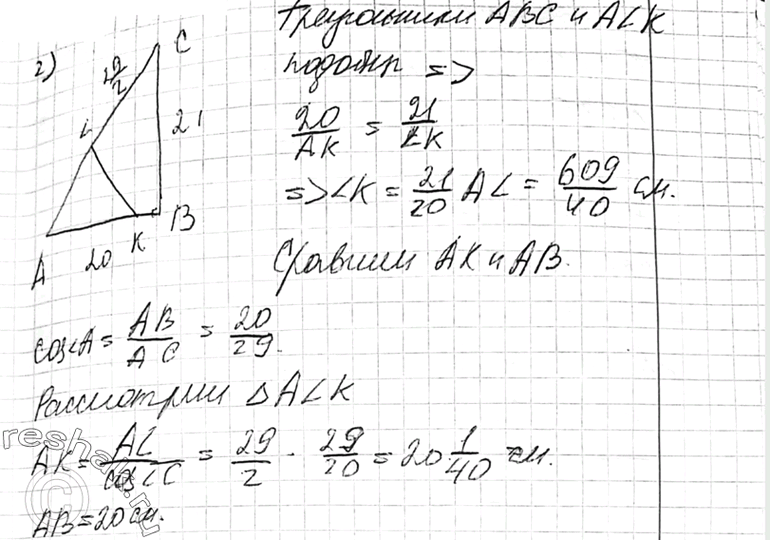 Треугольники ABC и ALK
подобны =>
20/AK = 21/LK
=> LK = 21/20 AL = 609/40 см.
Сравним AK и AB.
2)
C
29/2
L
21
A
20
K
B
cos∠A = AB/AC = 20/29.
Рассмотрим △ALK
AK = AL/cos∠C = 29/2 · 29/20 = 20 1/40 см.
AB = 20 см.
reshak.ru
©